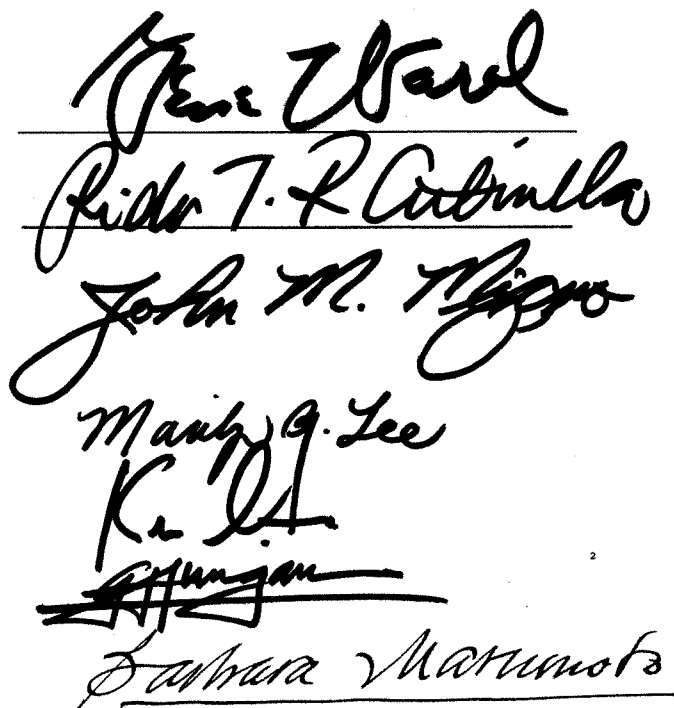 Gene Ward
Rida T. R Cabanilla
John M. Mizuno
Marilyn B. Lee
K
2
Barbara Marumoto